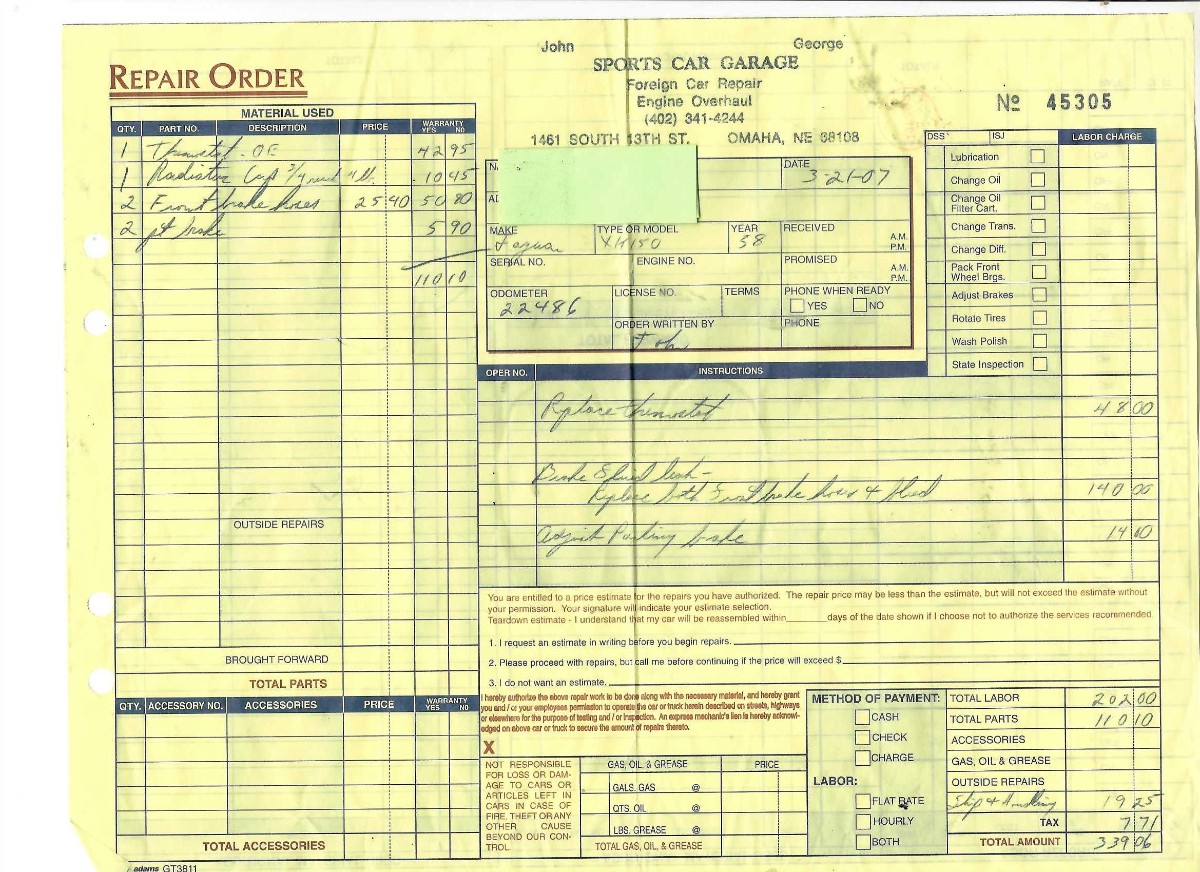 John George
REPAIR ORDER
SPORTS CAR GARAGE
Foreign Car Repair
Engine Overhaul
(402) 341-4244
1461 SOUTH 13TH ST. OMAHA, NE 68108
No 45305
MATERIAL USED
QTY. PART NO. DESCRIPTION PRICE WARRANTY YES NO
1 Thermostat - OE 42 95
1 Radiator Cap 10 45
2 Front brake hoses 25 40 50 80
2 pt brake 5 90
110 10
OUTSIDE REPAIRS
BROUGHT FORWARD
TOTAL PARTS
DATE
3-21-07
MAKE TYPE OR MODEL YEAR RECEIVED A.M. P.M.
Jaguar XK150 58
SERIAL NO. ENGINE NO. PROMISED A.M. P.M.
ODOMETER LICENSE NO. TERMS PHONE WHEN READY
22486 YES NO
ORDER WRITTEN BY PHONE
John
DSS ISJ LABOR CHARGE
Lubrication
Change Oil
Change Oil Filter Cart.
Change Trans.
Change Diff.
Pack Front Wheel Brgs.
Adjust Brakes
Rotate Tires
Wash Polish
State Inspection
OPER NO. INSTRUCTIONS
Replace thermostat 48 00
Brake fluid leak -
Replace both front brake hoses & bleed 140 00
Adjust Parking brake 14 00
You are entitled to a price estimate for the repairs you have authorized. The repair price may be less than the estimate, but will not exceed the estimate without
your permission. Your signature will indicate your estimate selection.
Teardown estimate - I understand that my car will be reassembled within ______ days of the date shown if I choose not to authorize the services recommended.
1. I request an estimate in writing before you begin repairs.
2. Please proceed with repairs, but call me before continuing if the price will exceed $
3. I do not want an estimate.
I hereby authorize the above repair work to be done along with the necessary material, and hereby grant
you and / or your employees permission to operate the car or truck herein described on streets, highways
or elsewhere for the purpose of testing and / or inspection. An express mechanic's lien is hereby acknowl-
edged on above car or truck to secure the amount of repairs thereto.
X
QTY. ACCESSORY NO. ACCESSORIES PRICE WARRANTY YES NO
TOTAL ACCESSORIES
NOT RESPONSIBLE
FOR LOSS OR DAM-
AGE TO CARS OR
ARTICLES LEFT IN
CARS IN CASE OF
FIRE, THEFT OR ANY
OTHER CAUSE
BEYOND OUR CON-
TROL.
GAS, OIL & GREASE PRICE
GALS. GAS @
QTS. OIL @
LBS. GREASE @
TOTAL GAS, OIL, & GREASE
METHOD OF PAYMENT:
CASH
CHECK
CHARGE
LABOR:
FLAT RATE
HOURLY
BOTH
TOTAL LABOR 202 00
TOTAL PARTS 110 10
ACCESSORIES
GAS, OIL & GREASE
OUTSIDE REPAIRS
Ship & Handling 19 25
TAX 7 71
TOTAL AMOUNT 339 06
adams GT3811